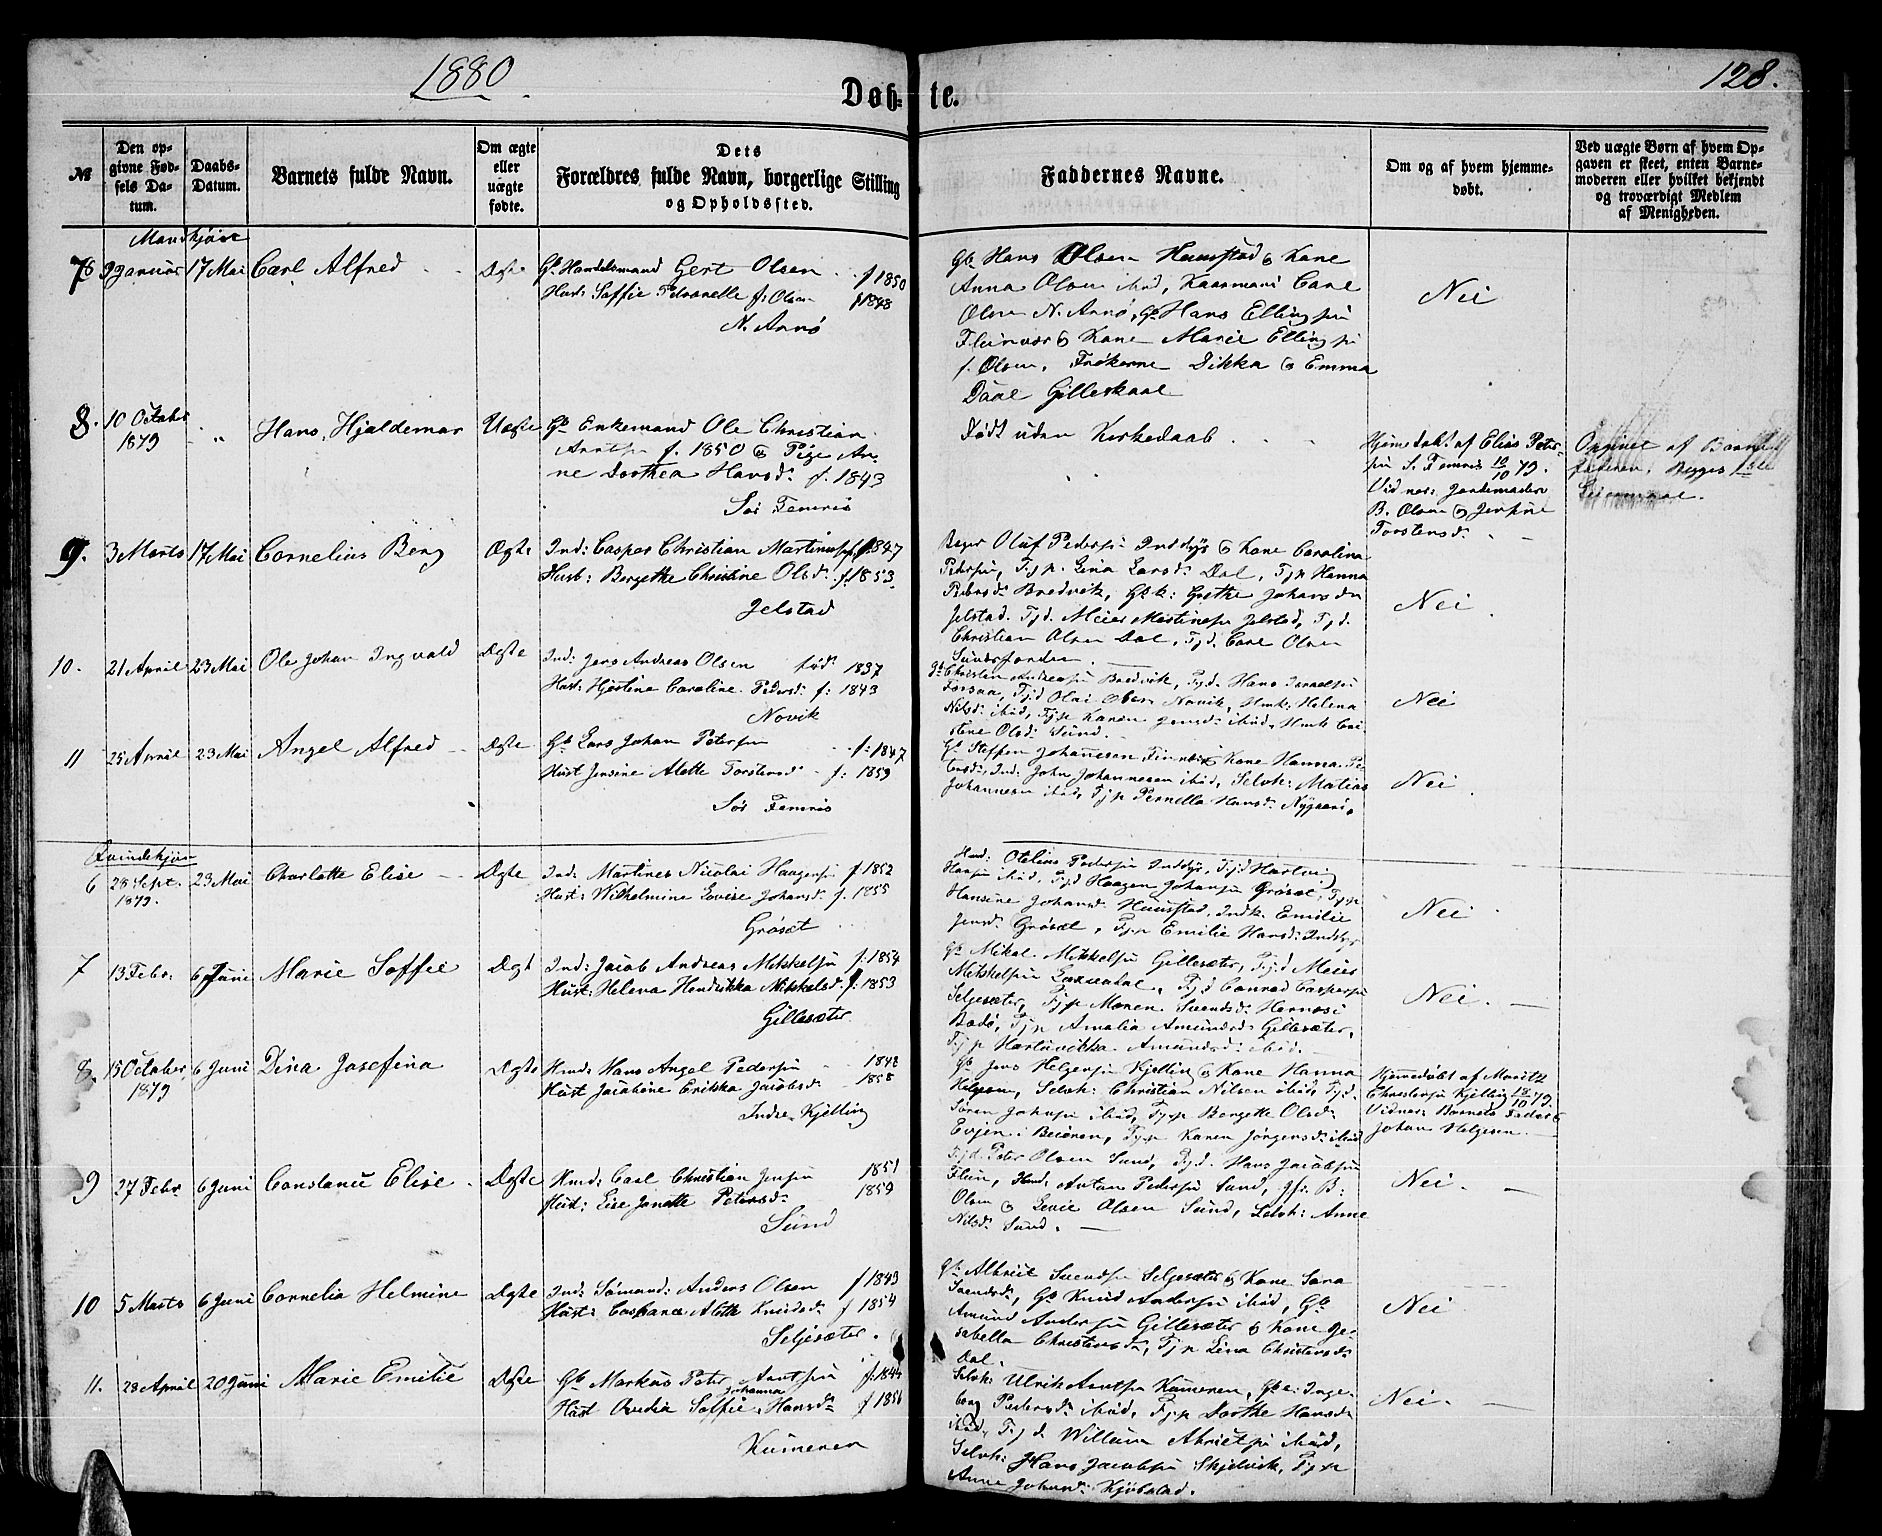 1880
Døb- te.
128.
№
Den op-
givne Fød-
sels Da-
tum.
Daabs-
Datum.
Barnets fulde Navn.
Om ægte
eller
uægte
fødte.
Dets
Forældres fulde Navn, borgerlige Stilling
og Opholdssted.
Faddernes Navne.
Om og af hvem hjemme-
døbt.
Ved uægte Børn af hvem Op-
gaven er skeet, enten Barne-
moderen eller hvilket bekjendt
og troværdigt Medlem
af Menigheden.
Mandkjøn
7 9 Januar 17 Mai Carl Alfred Ægte Gb. Handelsmand Gert Olsen f 1850
Hust: Soffie Petronelle f: Olsen f 1848
N. Arnø
Gb. Hans Olsen Hunstad & Kane
Anna Olsen ibid, Kaarmand Carl
Olsen N. Arnø, Gb. Hans Ellingsen
Fleinvær & Kane Marie Ellingsen
f. Olsen, Frøknerne Dikka & Emma
Daae Gilleskaal
Nei
8. 10 October
1879 " Hans Hjaldemar Uægte Gb. Enkemand Ole Christian
Arntsen f. 1850 & Pige An-
ne Dorthea Hansd. f. 1843
Sør Femris
Dødt uden Kirkedaab
Hjemedøbt af Elias Peter-
sen S. Femris 10/10 79.
Vidner: Jordemoder
B. Olsen & Jensine
Torstensd.
Opgivet af Barne
faderen. Begges 1ste
Leiermaal.
9. 3 Marts 17 Mai Cornelius Berg Ægte Ind: Casper Christian Martinusen f. 1847
Husb: Bergethe Christine Olsd. f. 1853
Jelstad
Bager Oluf Pedersen Inddyr & Kane Carolina
Petersen, Tj.p. Lina Larsd. Dal, Tjp Hanna
Pedersd. Bredvik, Gbk: Grethe Johansda
Jelstad. Tjd. Meier Martinsen Jelstad, Tjd.
Christian Olsen Dal, Tjd. Carl Olsen
Sundsfjorden
Nei
10. 21 April 23 Mai Ole Johan Ingvald Ægte Ind: Jens Andreas Olsen fød. 1837
Hust: Hjertina Caroline Pedersd. f: 1843
Novik
Gb. Christen Andreasen Bredvik, Tjd. Hans Israelsen
Forsaa, Tjd Olai Olsen Novik, Hmk: Helena
Nilsd. ibid, Tjp Karen Jensd. ibid, Hmk Cri-
stene Olsd. Sund.
Nei
11 25 April 23 Mai Angel Alfred Ægte Gb Lars Johan Petersen f: 1847
Hust Jensine Alette Torstensd. f: 1859
Sør Femris
Gb. Steffen Johannesen Finnvik & Kane Hanna Pe-
tersd., Ind: John Johannesen ibid, Selvk: Matias
Johannesen ibid, Tjp Pernella Hansd. Nygaard.
Nei
Qvindekjøn
6 28 Sept.
1879. 23 Mai Charlotte Elise Ægte Ind: Martines Nicolai Haagensen f. 1852
Hust: Wilhelmine Lovise Johansd. f. 1855
Grøsæt
Hmd: Otelius Pedersen Inddyr, Tjd Hartvig
Haagsen ibid, Tjd Haagen Johansen Grøsæt, Tjp
Hansine Johansd. Hunstad, Indk. Emilie
Jensd. Grøsæt, Tjp Emilie Hansd. Inddyr
Nei
7 13 Febr. 6 Juni Marie Soffie Ægt Ind: Jacob Andreas Mikkelsen f: 1854
Hust: Helena Hendrikka Mikkelsd. f: 1853
Gillesæter.
Gb. Mikal Mikkelsen Gillesæter, Tjd Meier
Mikkelsen Laxsendal, Tjd Conrad Caspersen
Seljesæter, Tjp Maren Svendsd. Hernæs i
Bodø, Tjp Amalia Amundsd. Gillesæter,
Tjp Hartvikka Amundsd. ibid.
Nei.
8. 15 October
1879 6 Juni Dina Josefina Ægte Hmd: Hans Angel Pedersen 1848
Hust Jacobine Erikka Jacobsd. 1858
Indre Kjelling
Gb. Jens Helgesen Kjelling & Kane Hanna
Helgesen, Selvk: Christian Nilsen ibid, Tjd.
Søren Johnsen ibid, Tjp Bergette Olsd.
Evjen i Beieren, Tjp Karen Jørgensd. ibid
Hjemmedøbt af Moritz
Christensen Kjelling 18/10 79.
Vidner: Barnets Fader &
Johan Helgesen.
9 27 Febr 6 Juni Constance Elise Ægte Hmd: Carl Christian Jensen 1851
Hust: Lise Janette Petersd. 1859
Sund
Tjd. Peter Olsen Sund, Tjd. Hans Jacobsen
Flein, Hmd. Anton Pedersen Sund, Gfr. B:
Olsen & Levie Olsen Sund, Selvk: Anne
Nilsd. Sund.
Nei.
10 5 Marts 6 Juni Cornelia Helmine Ægte Ind: Sømand: Anders Olsen f 1843
Hust: Caspara Alette Knudsd. f 1854
Seljesæter.
Gb. Albreit Svendsen Seljesæter & Kane Sara
Svendsd., Gb. Knud Andersen ibid, Gb.
Amund Andersen Gillesæter & Kane Je-
sabella Christensda, Tjp Lina Christensd.
Dal.
Nei
11. 28 April 20 Juni Marie Emilie Ægte Gb. Markus Peter Arntsen f. 1844
Johanna
Hust Ovedia Soffie Hansd. f 1856
Kumeren
Selvk: Ulrik Arntsen Kumeren, Gbe: Inge-
borg Pedersd. ibid, Tjp Dorthe Hansd.
ibid, Tjd. Willum Abrietsen ibid,
Selvk: Hans Jacobsen Skjelvik, Tjp
Anne Johansd. Kjøbstad.
Nei.